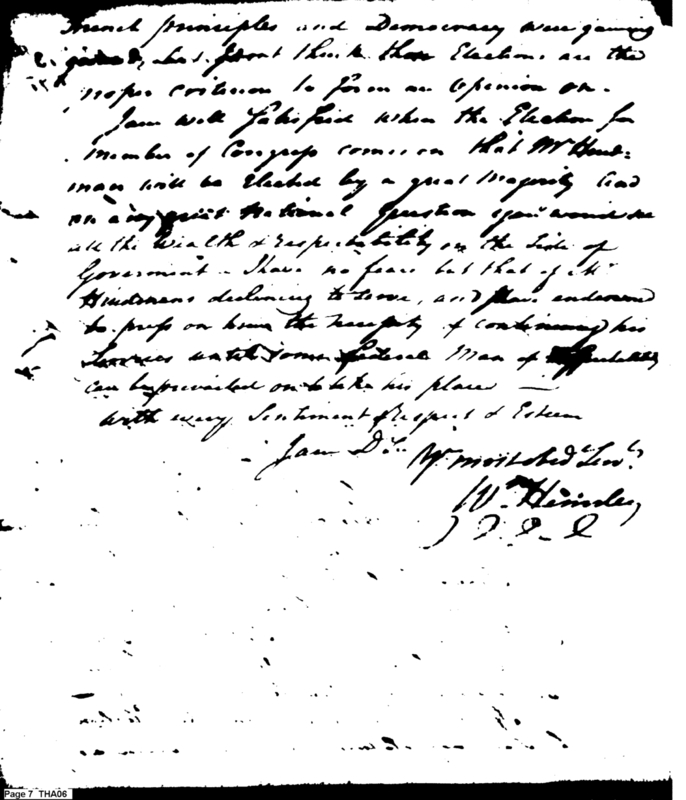 French principles and Democracy were gaining
ground, but I dont think that Elections are the
proper criterion to form an Opinion on.
I am well Satisfied when the Election for
Member of Congress comes on that Mr Hind=
man will be Elected by a great Majority and
on any great National Question you would see
all the Wealth & respectability on the Side of
Goverment - I have no fears but that of Mr
Hindmans declining to serve, and have endeavoured
to press on him the necessity of continuing his
Services until some Federal Man of Respectability
can be prevailed on to take his place —
With every Sentiment of Respect & Esteem
I am Dr Sir Yr most obedt Servt
Wm
Page 7 THA06